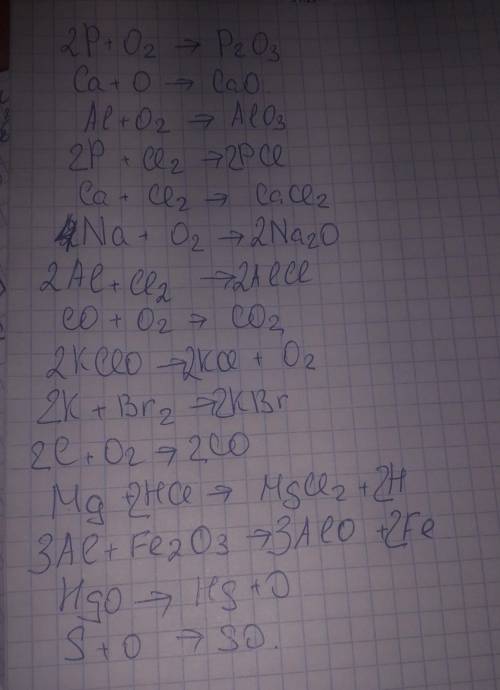 2P + O2 → P2O3
Ca + O → CaO
Al + O2 → AlO3
2P + Cl2 → 2PCl
Ca + Cl2 → CaCl2
4Na + O2 → 2Na2O
2Al + Cl2 → 2AlCl
CO + O2 → CO2
2KClO → 2KCl + O2
2K + Br2 → 2KBr
2C + O2 → 2CO
Mg + 2HCl → MgCl2 + 2H
3Al + Fe2O3 → 3AlO + 2Fe
HgO → Hg + O
S + O → SO.